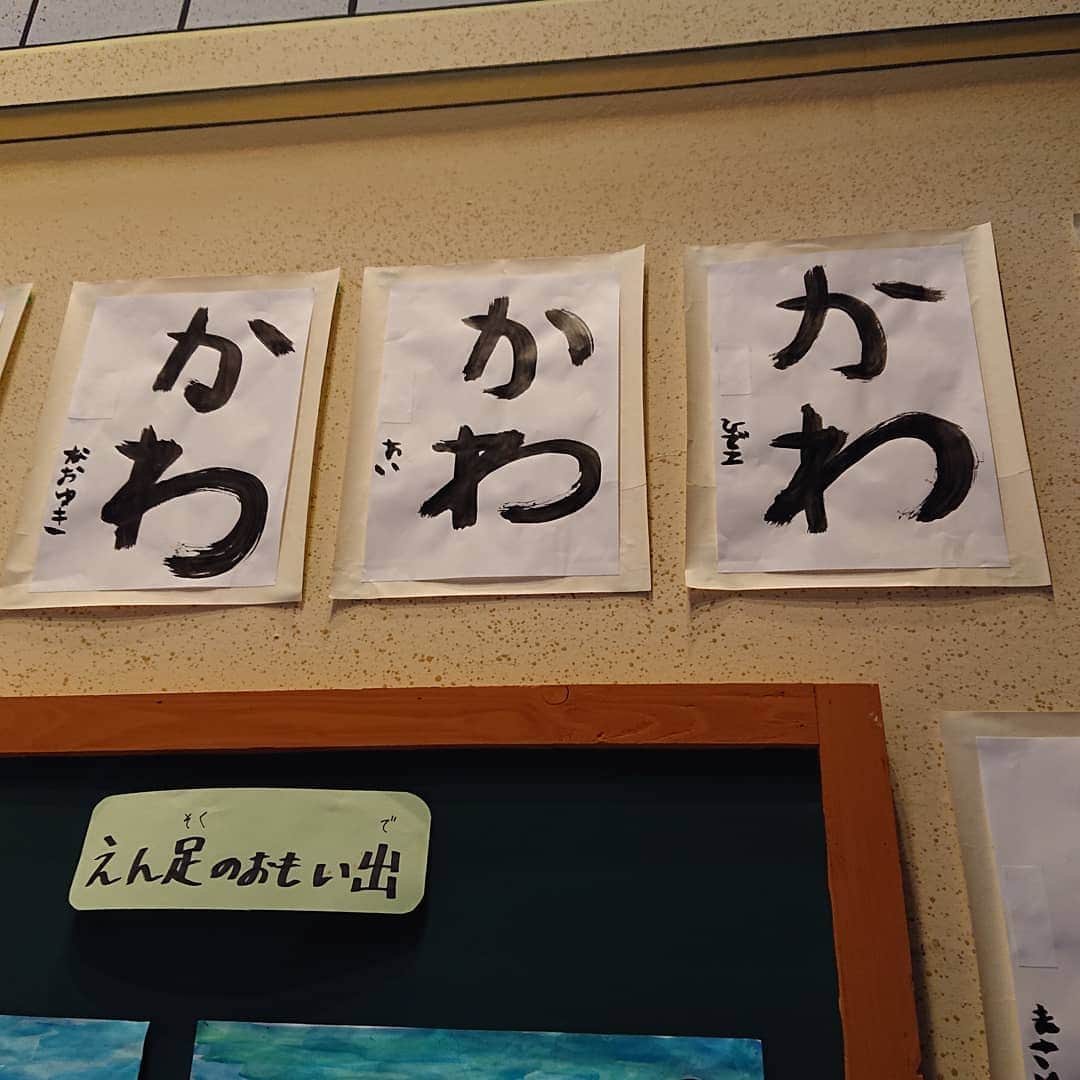 かわ
なおゆき
かわ
あい
かわ
えん足のおもい出
そく
で
まさ